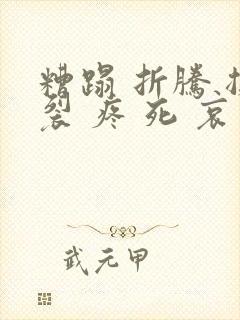 糟蹋 折騰
裂 疼 死 哀
武元甲